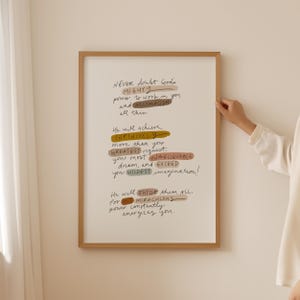 NEVER doubt God's
MIGHTY
power to work in you
and ACCOMPLISH
all this.
He will achieve
INFINITELY
more than your
GREATEST request
your most UNBELIEVABLE
dream, and EXCEED
your WILDEST imagination!
He will OUTDO them all
for his MIRACULOUS
power constantly
energizes you.